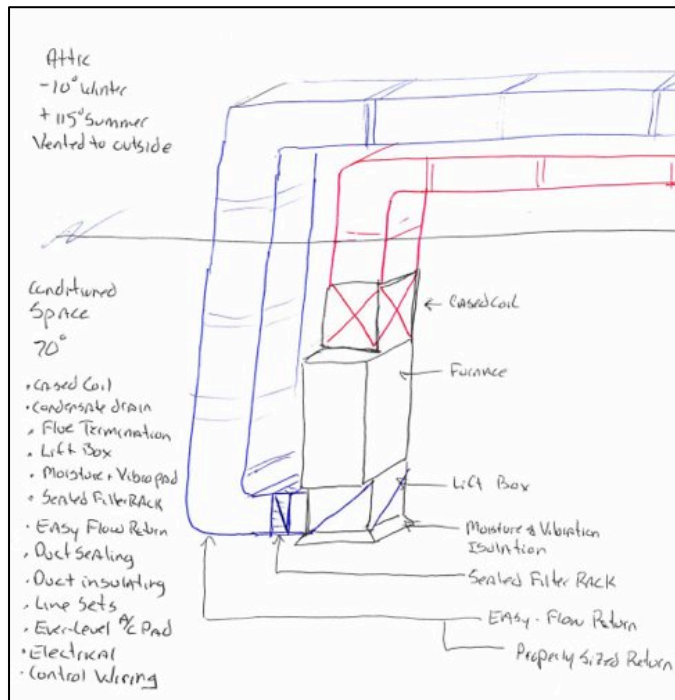 Attic
-10° Winter
+115° Summer
Vented to outside
Conditioned
Space
70°
• Cased Coil
• Condensate drain
• Flue Termination
• Lift Box
• Moisture + Vibropad
• Sealed Filter RACK
• EASY Flow Return
• Duct Sealing
• Duct insulating
• Line Sets
• Ever-Level A/C Pad
• Electrical
• Control Wiring
Cased Coil
Furnace
Lift Box
Moisture & Vibration
Isolation
Sealed Filter RACK
EASY-Flow Return
Properly Sized Return